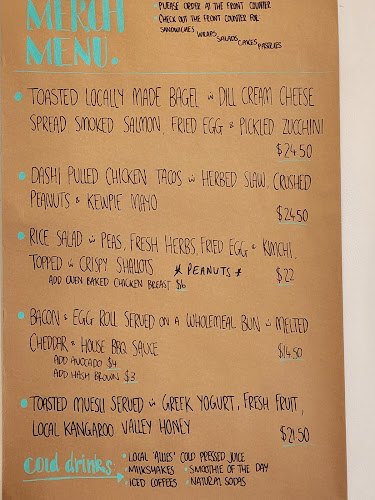 MERCH
MENU.
• PLEASE ORDER AT THE FRONT COUNTER
• CHECK OUT THE FRONT COUNTER FOR
SANDWICHES WRAPS SALADS CAKES PASTRIES
• TOASTED LOCALLY MADE BAGEL w DILL CREAM CHEESE
SPREAD, SMOKED SALMON, FRIED EGG & PICKLED ZUCCHINI
$24.50
• DASHI PULLED CHICKEN TACOS w HERBED SLAW, CRUSHED
PEANUTS & KEWPIE MAYO
$24.50
• RICE SALAD w PEAS, FRESH HERBS, FRIED EGG & KIMCHI,
TOPPED w CRISPY SHALLOTS * PEANUTS *
$22
ADD OVEN BAKED CHICKEN BREAST $6
• BACON & EGG ROLL SERVED ON A WHOLEMEAL BUN w MELTED
CHEDDAR & HOUSE BBQ SAUCE
$14.50
ADD AVOCADO $4
ADD HASH BROWN $3
• TOASTED MUESLI SERVED w GREEK YOGURT, FRESH FRUIT,
LOCAL KANGAROO VALLEY HONEY
$21.50
cold drinks:
• LOCAL 'ALLIES' COLD PRESSED JUICE
• MILKSHAKES • SMOOTHIE OF THE DAY
• ICED COFFEES • NATURAL SODAS